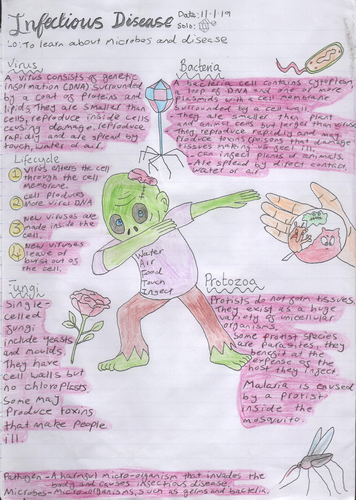 Infectious Disease
Date: 11-1-19
Solo:
LO: To learn about Microbes and disease
Virus
A virus consists of genetic
information (DNA) surrounded
by a coat of proteins and
lipids. They are smaller than
cells, reproduce inside cells
causing damage, reproduce
rapidly and are spread by
touch, water or air.
Bacteria
A bacteria cell contains cytoplasm,
loop of DNA and one or more
plasmids with a cell membrane
surrounded by a cell wall.
- They are smaller than plant
and animal cells but larger than virus
They reproduce rapidly and may
produce toxins/poisons that damage
tissues making us feel ill.
- Can infect plants or animals.
- Are spread by direct contact,
water or air
Lifecycle
1 Virus enters the cell
through the cell
membrane.
2 Cell produces
More viral DNA
3 New viruses are
made inside the
cell.
4 New viruses
leave or
burst out of
the cell.
Water
Air
Food
Touch
Insect
Fungi
Single-
celled
fungi
include yeasts
and moulds.
They have
cell walls but
no chloroplasts
Some may
Produce toxins
that make people
ill
Protozoa
Protists do not form tissues
They exist as a huge
variety of unicellular
organisms.
Some protist species
are parasites, they
benefit at the
expense of the
host they infect
Malaria is caused
by a protist
inside the
mosquito.
Pathogen - A harmful micro-organism that invades the
body and causes infectious disease.
Microbes - Micro-organisms, such as germs and bacteria.